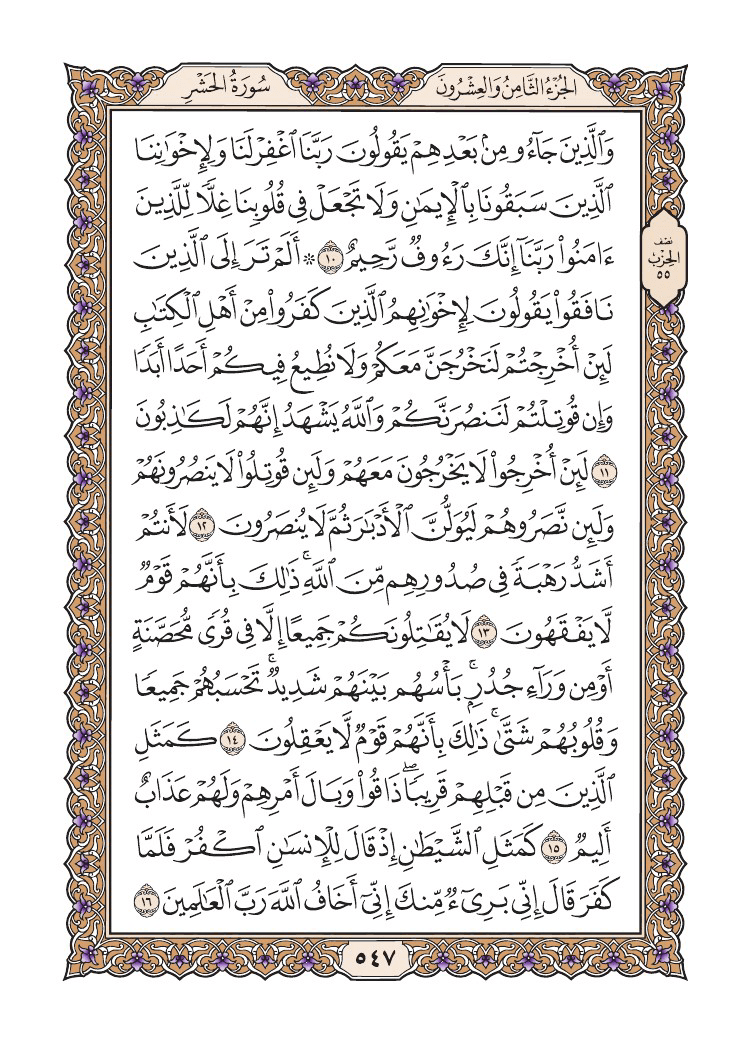 الجُزْءُ الثَّامِنُ وَالعِشْرُونَ
سُورَةُ الحَشْرِ
وَٱلَّذِينَ جَآءُو مِنۢ بَعْدِهِمْ يَقُولُونَ رَبَّنَا ٱغْفِرْ لَنَا وَلِإِخْوَٰنِنَا
ٱلَّذِينَ سَبَقُونَا بِٱلْإِيمَٰنِ وَلَا تَجْعَلْ فِى قُلُوبِنَا غِلًّا لِّلَّذِينَ
ءَامَنُوا۟ رَبَّنَآ إِنَّكَ رَءُوفٌ رَّحِيمٌ ١٠ ۞ أَلَمْ تَرَ إِلَى ٱلَّذِينَ
نَافَقُوا۟ يَقُولُونَ لِإِخْوَٰنِهِمُ ٱلَّذِينَ كَفَرُوا۟ مِنْ أَهْلِ ٱلْكِتَٰبِ
لَئِنْ أُخْرِجْتُمْ لَنَخْرُجَنَّ مَعَكُمْ وَلَا نُطِيعُ فِيكُمْ أَحَدًا أَبَدًا
وَإِن قُوتِلْتُمْ لَنَنصُرَنَّكُمْ وَٱللَّهُ يَشْهَدُ إِنَّهُمْ لَكَٰذِبُونَ
١١ لَئِنْ أُخْرِجُوا۟ لَا يَخْرُجُونَ مَعَهُمْ وَلَئِن قُوتِلُوا۟ لَا يَنصُرُونَهُمْ
وَلَئِن نَّصَرُوهُمْ لَيُوَلُّنَّ ٱلْأَدْبَٰرَ ثُمَّ لَا يُنصَرُونَ ١٢ لَأَنتُمْ
أَشَدُّ رَهْبَةً فِى صُدُورِهِم مِّنَ ٱللَّهِ ۚ ذَٰلِكَ بِأَنَّهُمْ قَوْمٌ
لَّا يَفْقَهُونَ ١٣ لَا يُقَٰتِلُونَكُمْ جَمِيعًا إِلَّا فِى قُرًى مُّحَصَّنَةٍ
أَوْ مِن وَرَآءِ جُدُرٍۭ ۚ بَأْسُهُم بَيْنَهُمْ شَدِيدٌ ۚ تَحْسَبُهُمْ جَمِيعًا
وَقُلُوبُهُمْ شَتَّىٰ ۚ ذَٰلِكَ بِأَنَّهُمْ قَوْمٌ لَّا يَعْقِلُونَ ١٤ كَمَثَلِ
ٱلَّذِينَ مِن قَبْلِهِمْ قَرِيبًا ۖ ذَاقُوا۟ وَبَالَ أَمْرِهِمْ وَلَهُمْ عَذَابٌ
أَلِيمٌ ١٥ كَمَثَلِ ٱلشَّيْطَٰنِ إِذْ قَالَ لِلْإِنسَٰنِ ٱكْفُرْ فَلَمَّا
كَفَرَ قَالَ إِنِّى بَرِىٓءٌ مِّنكَ إِنِّىٓ أَخَافُ ٱللَّهَ رَبَّ ٱلْعَٰلَمِينَ ١٦
نصف
الحِزْب
٥٥
٥٤٧